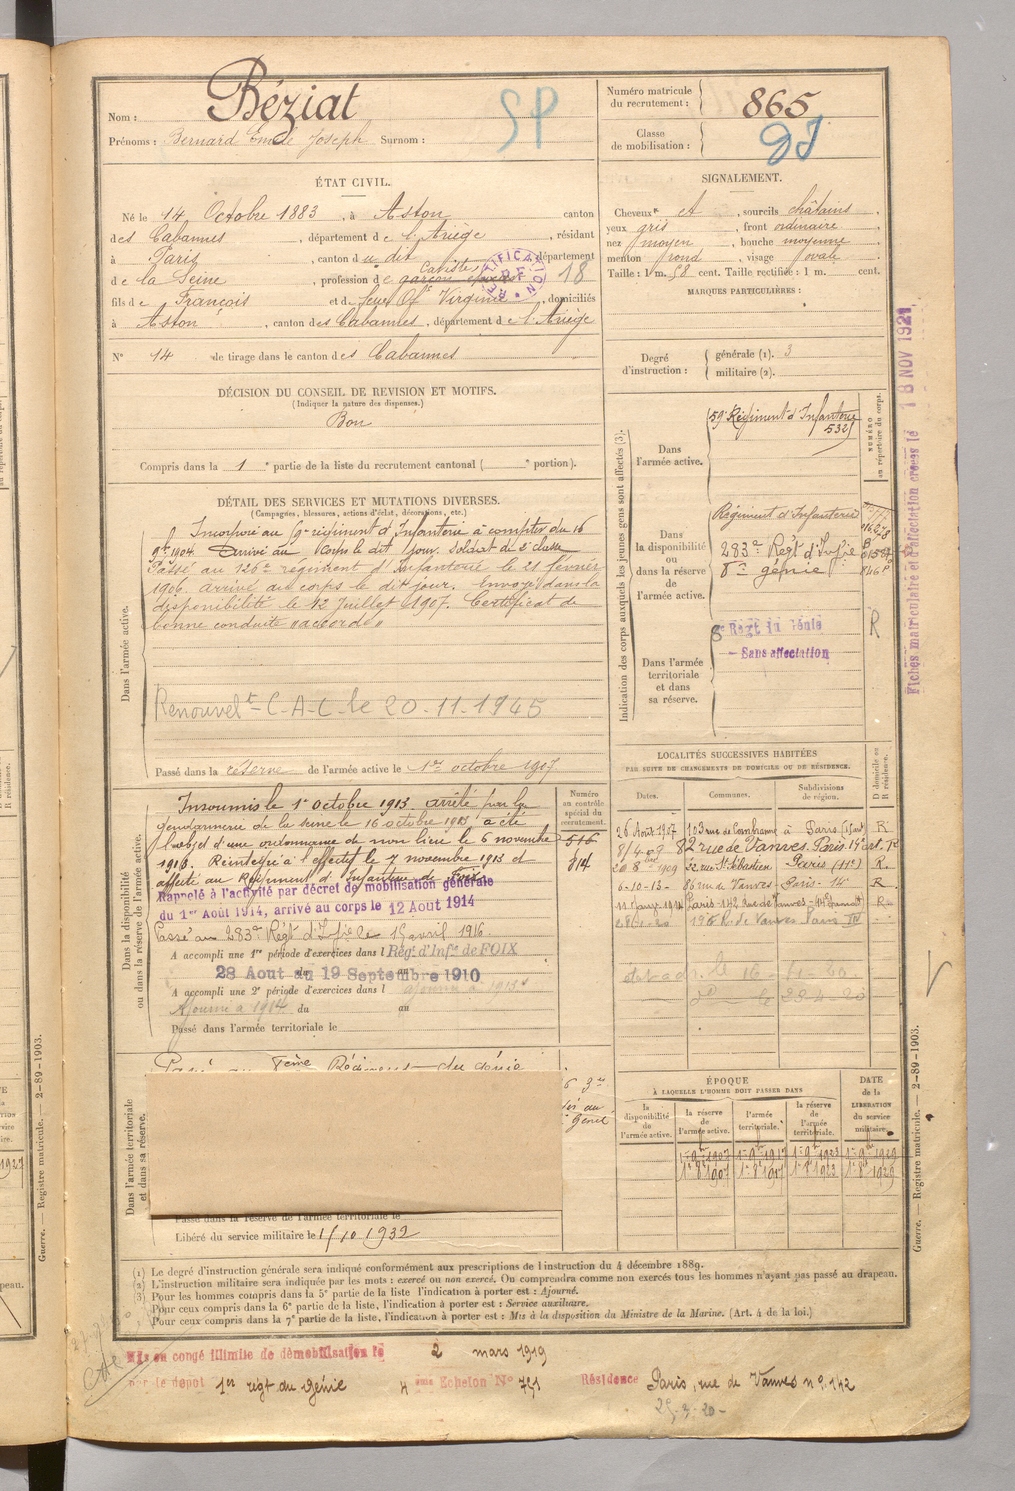 Nom : Béziat
SP
Prénoms : Bernard Emile Joseph Surnom :
Numéro matricule du recrutement : 865
Classe de mobilisation :
ÉTAT CIVIL.
Né le 14 Octobre 1883, à Aston canton
des Cabannes, département de l'Ariège, résidant
à Paris, canton du dit, département
de la Seine, profession de garçon
Caviste
RECTIFICATION
18
fils de François et de feue Virginie, domiciliés
à Aston, canton des Cabannes, département de l'Ariège
N° 14 de tirage dans le canton des Cabannes
SIGNALEMENT.
Cheveux et, sourcils châtains,
yeux gris, front ordinaire,
nez moyen, bouche moyenne
menton rond, visage ovale
Taille : 1 m. 58 cent. Taille rectifiée : 1 m. cent.
MARQUES PARTICULIÈRES :
Degré d'instruction : générale (1). 3
militaire (2).
DÉCISION DU CONSEIL DE REVISION ET MOTIFS.
(Indiquer la nature des dispenses.)
Bon
Compris dans la 1e partie de la liste du recrutement cantonal ( e portion).
DÉTAIL DES SERVICES ET MUTATIONS DIVERSES.
(Campagnes, blessures, actions d'éclat, décorations, etc.)
Dans l'armée active.
Incorporé au régiment d'Infanterie à compter du 16
9bre 1904. Arrivé au Corps le dit jour. Soldat de 2e classe
Passé au 126e régiment d'Infanterie le 21 février
1906. arrivé au corps le dit jour. Envoyé dans la
disponibilité le 12 Juillet 1907. Certificat de
bonne conduite "accordé"
Renouvelt C-A-C le 20-11-1945
Passé dans la réserve de l'armée active le 1er octobre 1907
Dans la disponibilité ou dans la réserve de l'armée active.
Insoumis le 1er Octobre 1913. arrêté par la
gendarmerie de la Seine le 16 octobre 1913 a été
l'objet d'une ordonnance de non lieu le 6 novembre
1913. Réintégré à l'effectif le 7 novembre 1913 et
affecté au Régiment d'Infanterie de Foix
Rappelé à l'activité par décret de mobilisation générale
du 1er Août 1914, arrivé au corps le 12 Aout 1914
Passé au 283e Régt d'Infie le 15 avril 1916.
A accompli une 1re période d'exercices dans l Rég. d'Infie de FOIX
28 Aout au 19 Septembre 1910
A accompli une 2e période d'exercices dans l ajourné à 1913
Ajourné à 1914 du au
Passé dans l'armée territoriale le
Numéro au contrôle spécial du recrutement.
516
314
Dans l'armée territoriale et dans sa réserve.
Passé au 8ème Régiment du génie
Passé dans la réserve de l'armée territoriale le
Libéré du service militaire le 1/10 1932
Indication des corps auxquels les jeunes gens sont affectés (3).
NUMÉRO au répertoire du corps.
Dans l'armée active.
59e Régiment d'Infanterie
532
Dans la disponibilité ou dans la réserve de l'armée active.
Régiment d'Infanterie
283e Régt d'Infie
8e génie
Dans l'armée territoriale et dans sa réserve.
8e Régt du Génie
- Sans affectation
R
Fiches matriculaire et d'affectation créées le 18 NOV 1921
LOCALITÉS SUCCESSIVES HABITÉES
PAR SUITE DE CHANGEMENTS DE DOMICILE OU DE RÉSIDENCE.
Dates. Communes. Subdivisions de région. D domicile ou R résidence.
26 Août 1907 103 rue de à Paris R
8/4 09 82 rue de Vanves Paris 14e
1909 52 rue St Sébastien Paris (11e) R.
6-10-13- 86 rue de Vanves Paris 14e R
Paris 142 rue de Vanves R
R. de Vanves Paris
ÉPOQUE
À LAQUELLE L'HOMME DOIT PASSER DANS
la disponibilité de l'armée active. la réserve de l'armée active. l'armée territoriale. la réserve de l'armée territoriale. DATE de la LIBÉRATION du service militaire.
1er 8bre 1907 1er 8bre 1917 1er 8bre 1923 1er 8bre 1929
(1) Le degré d'instruction générale sera indiqué conformément aux prescriptions de l'instruction du 4 décembre 1889.
(2) L'instruction militaire sera indiquée par les mots : exercé ou non exercé. On comprendra comme non exercés tous les hommes n'ayant pas passé au drapeau.
(3) Pour les hommes compris dans la 5e partie de la liste l'indication à porter est : Ajourné.
Pour ceux compris dans la 6e partie de la liste, l'indication à porter est : Service auxiliaire.
Pour ceux compris dans la 7e partie de la liste, l'indication à porter est : Mis à la disposition du Ministre de la Marine. (Art. 4 de la loi.)
Guerre. — Registre matricule. — 2-89-1903.
Guerre. — Registre matricule. — 2-89-1903.
Mis en congé illimité de démobilisation le 2 mars 1919
par le dépôt 1er régt du Génie 4 ème Echelon N° 751 Résidence Paris, rue de Vanves n° 142
25-3-20-